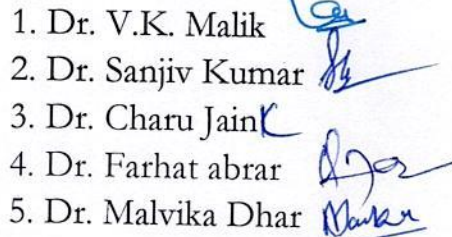 1. Dr. V.K. Malik
2. Dr. Sanjiv Kumar
3. Dr. Charu Jain
4. Dr. Farhat abrar
5. Dr. Malvika Dhar